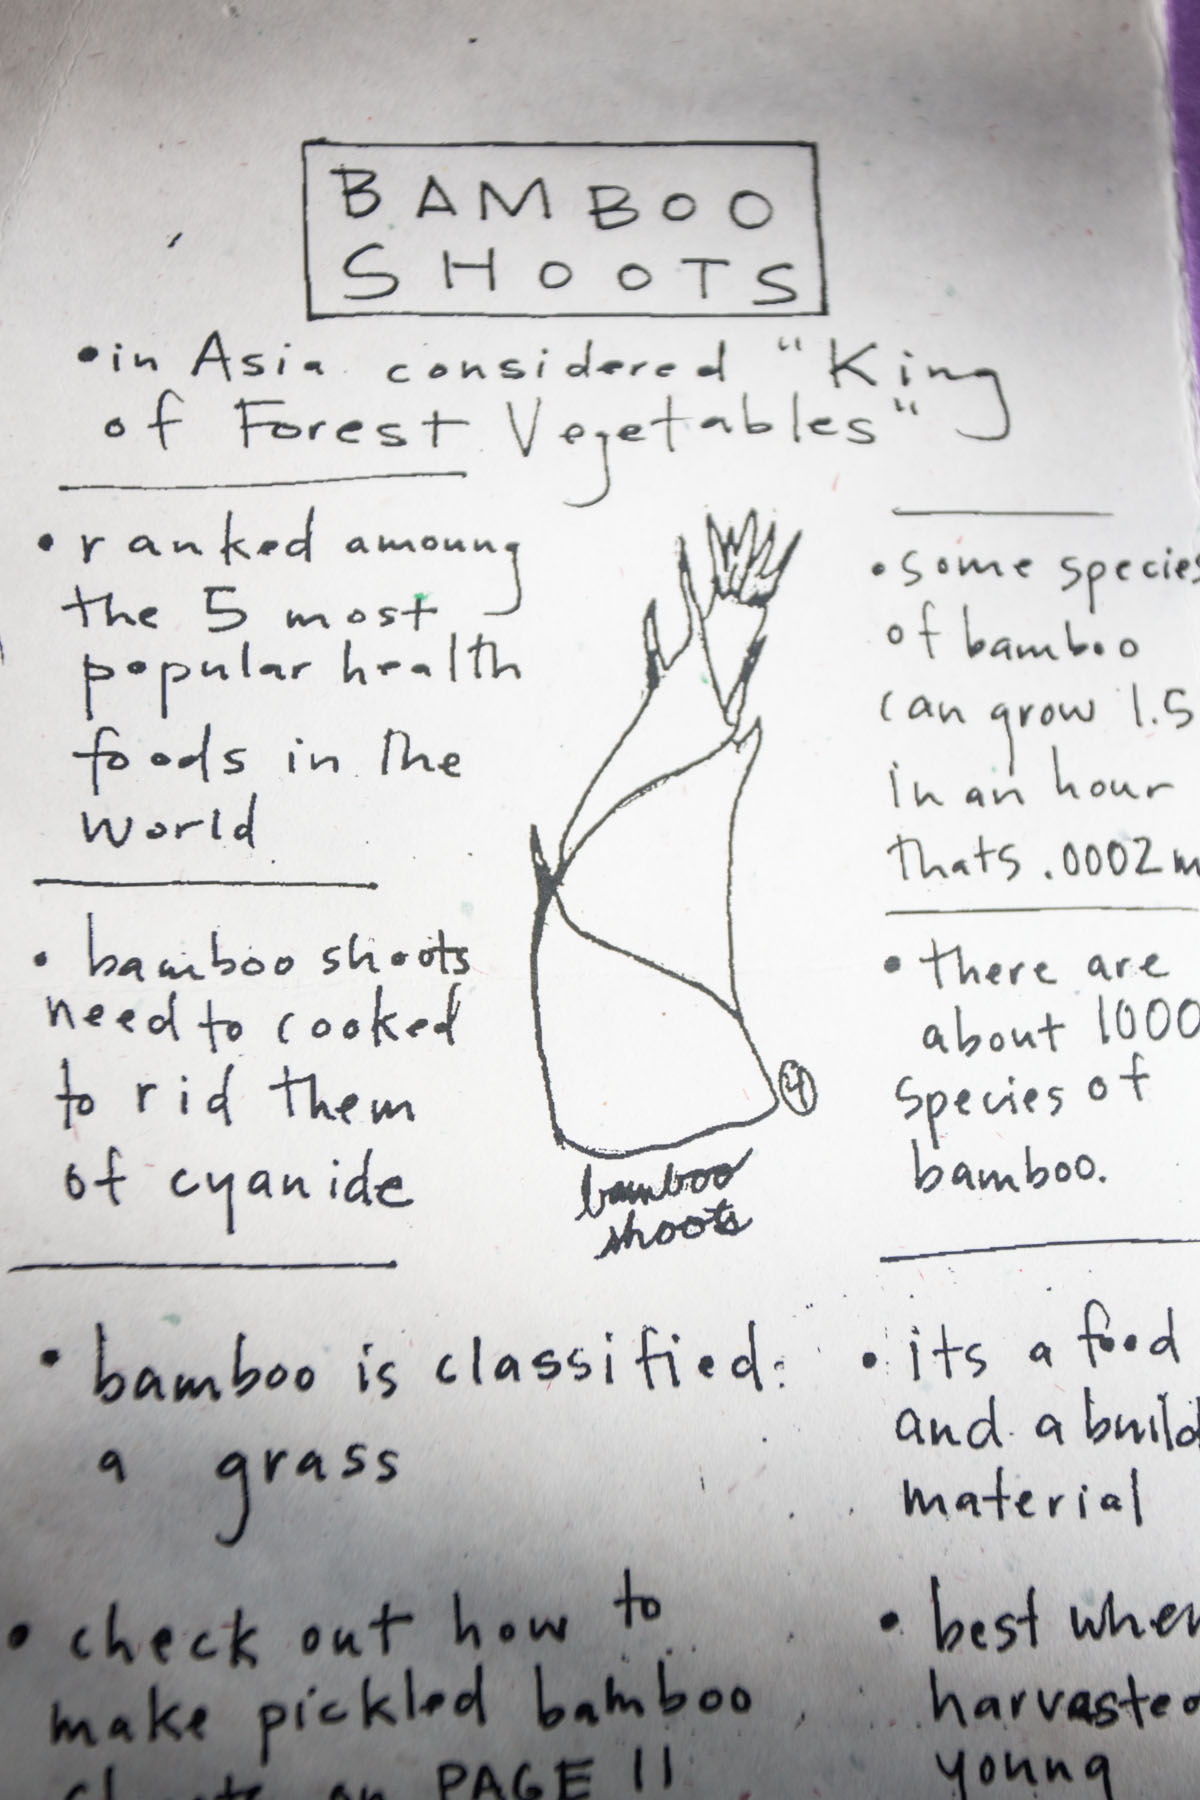 BAMBOO
SHOOTS
• in Asia considered "King
of Forest Vegetables"
• ranked amoung
the 5 most
popular health
foods in the
world
• bamboo shoots
need to cooked
to rid them
of cyanide
• bamboo is classified:
a grass
• check out how to
make pickled bamboo
on PAGE 11
4
bamboo
shoots
• some species
of bamboo
can grow 1.5
in an hour
thats .0002 m
• there are
about 1000
species of
bamboo.
• its a food
and a build
material
• best when
harvasted
young